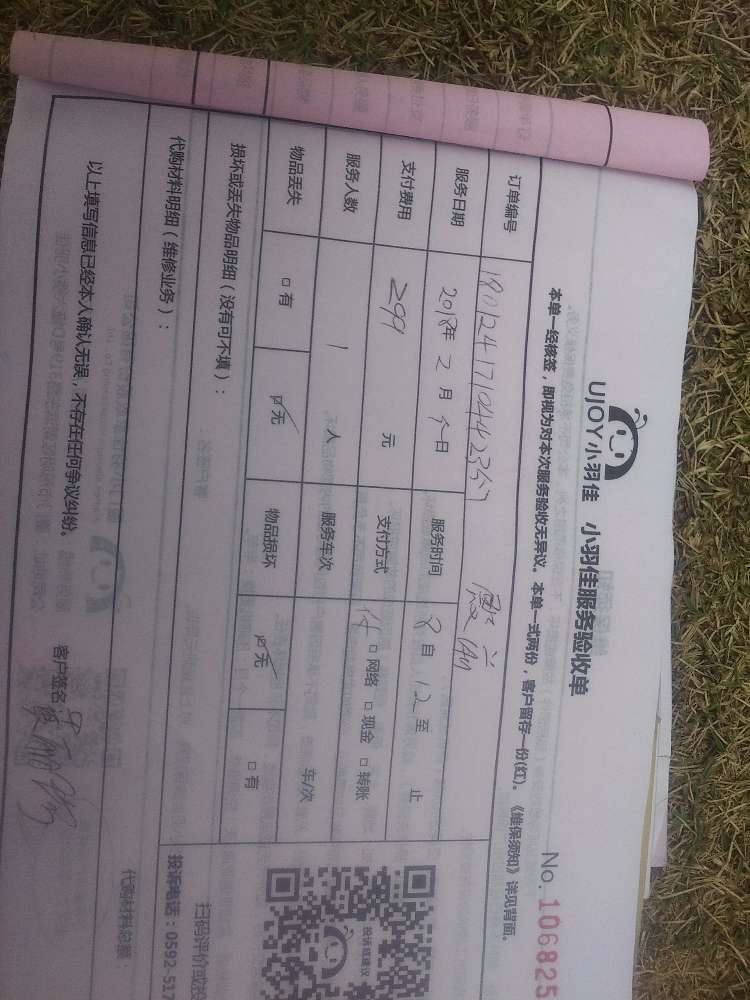 UJOY小羽佳 小羽佳服务验收单
No. 106825
本单一经核签，即视为对本次服务验收无异议。本单一式两份，客户留存一份(红)。《维保须知》详见背面。
订单编号
服务日期 2018年 2月 个日 服务时间 8 自 12 至 止
支付费用 299 元 支付方式 □网络 □现金 □转账
服务人数 1 人 服务车次 车/次
物品丢失 □有 □无 物品损坏 □无 □有
损坏或丢失物品明细（没有可不填）：
投诉或建议
扫码评价或投
代购材料明细（维修业务）：
投诉电话：0592-517
代购材料总额：
以上填写信息已经本人确认无误，不存在任何争议纠纷。
客户签名